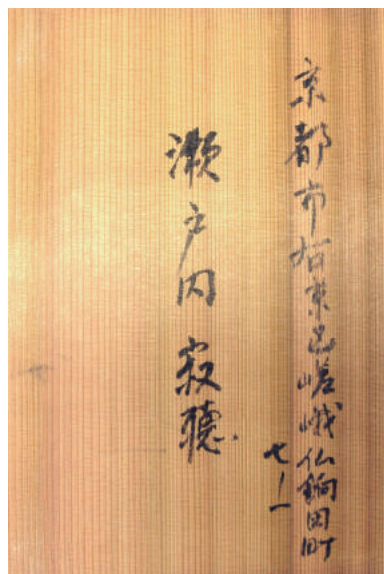 京都市右京区嵯峨仏餉田町
七ー一
瀬戸内 寂聴